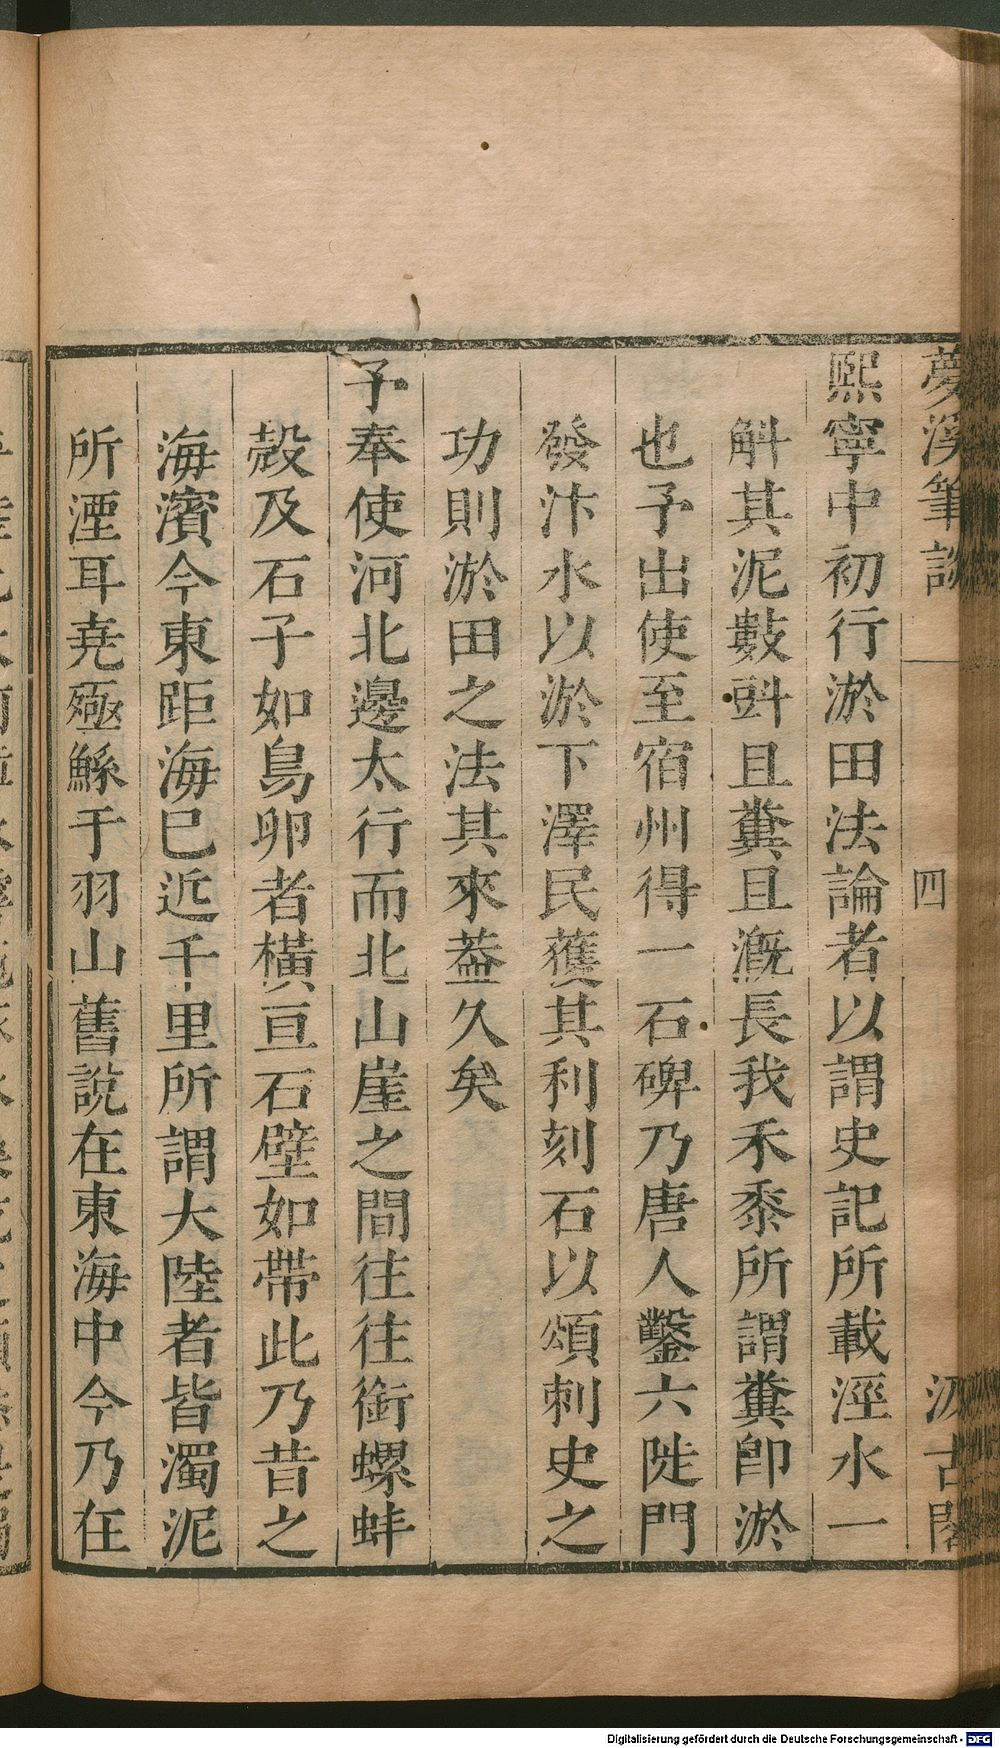 夢溪筆談 四 汲古閣
熙寧中初行淤田法論者以謂史記所載涇水一
斛其泥數㪷且糞且溉長我禾黍所謂糞卽淤
也予出使至宿州得一石碑乃唐人鑿六陡門
發汴水以淤下澤民獲其利刻石以頌刺史之
功則淤田之法其來葢久矣
予奉使河北邊太行而北山崖之間往往銜螺蚌
殼及石子如鳥卵者橫亘石壁如帶此乃昔之
海濱今東距海已近千里所謂大陸者皆濁泥
所湮耳堯殛鯀于羽山舊說在東海中今乃在
Digitalisierung gefördert durch die Deutsche Forschungsgemeinschaft - DFG